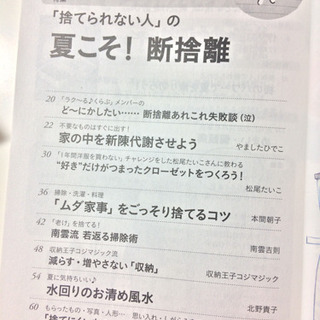 「捨てられない人」の
夏こそ！断捨離
20 「ラク～る♪くらぶ」メンバーの
ど～にかしたい…… 断捨離あれこれ失敗談(泣)
22 不要なものはすぐに出す！
家の中を新陳代謝させよう やましたひでこ
30 「1年間洋服を買わない」チャレンジをした松尾たいこさんに教わる
“好き”だけがつまったクローゼットをつくろう！ 松尾たいこ
36 掃除・洗濯・料理
「ムダ家事」をごっそり捨てるコツ 本間朝子
42 「老け」を捨てる！
南雲流 若返る掃除術 南雲吉則
48 収納王子コジマジック流
減らす・増やさない「収納」 収納王子コジマジック
54 夏に気持ちいい♪
水回りのお清め風水 北野貴子
60 もらったもの・写真・人形…